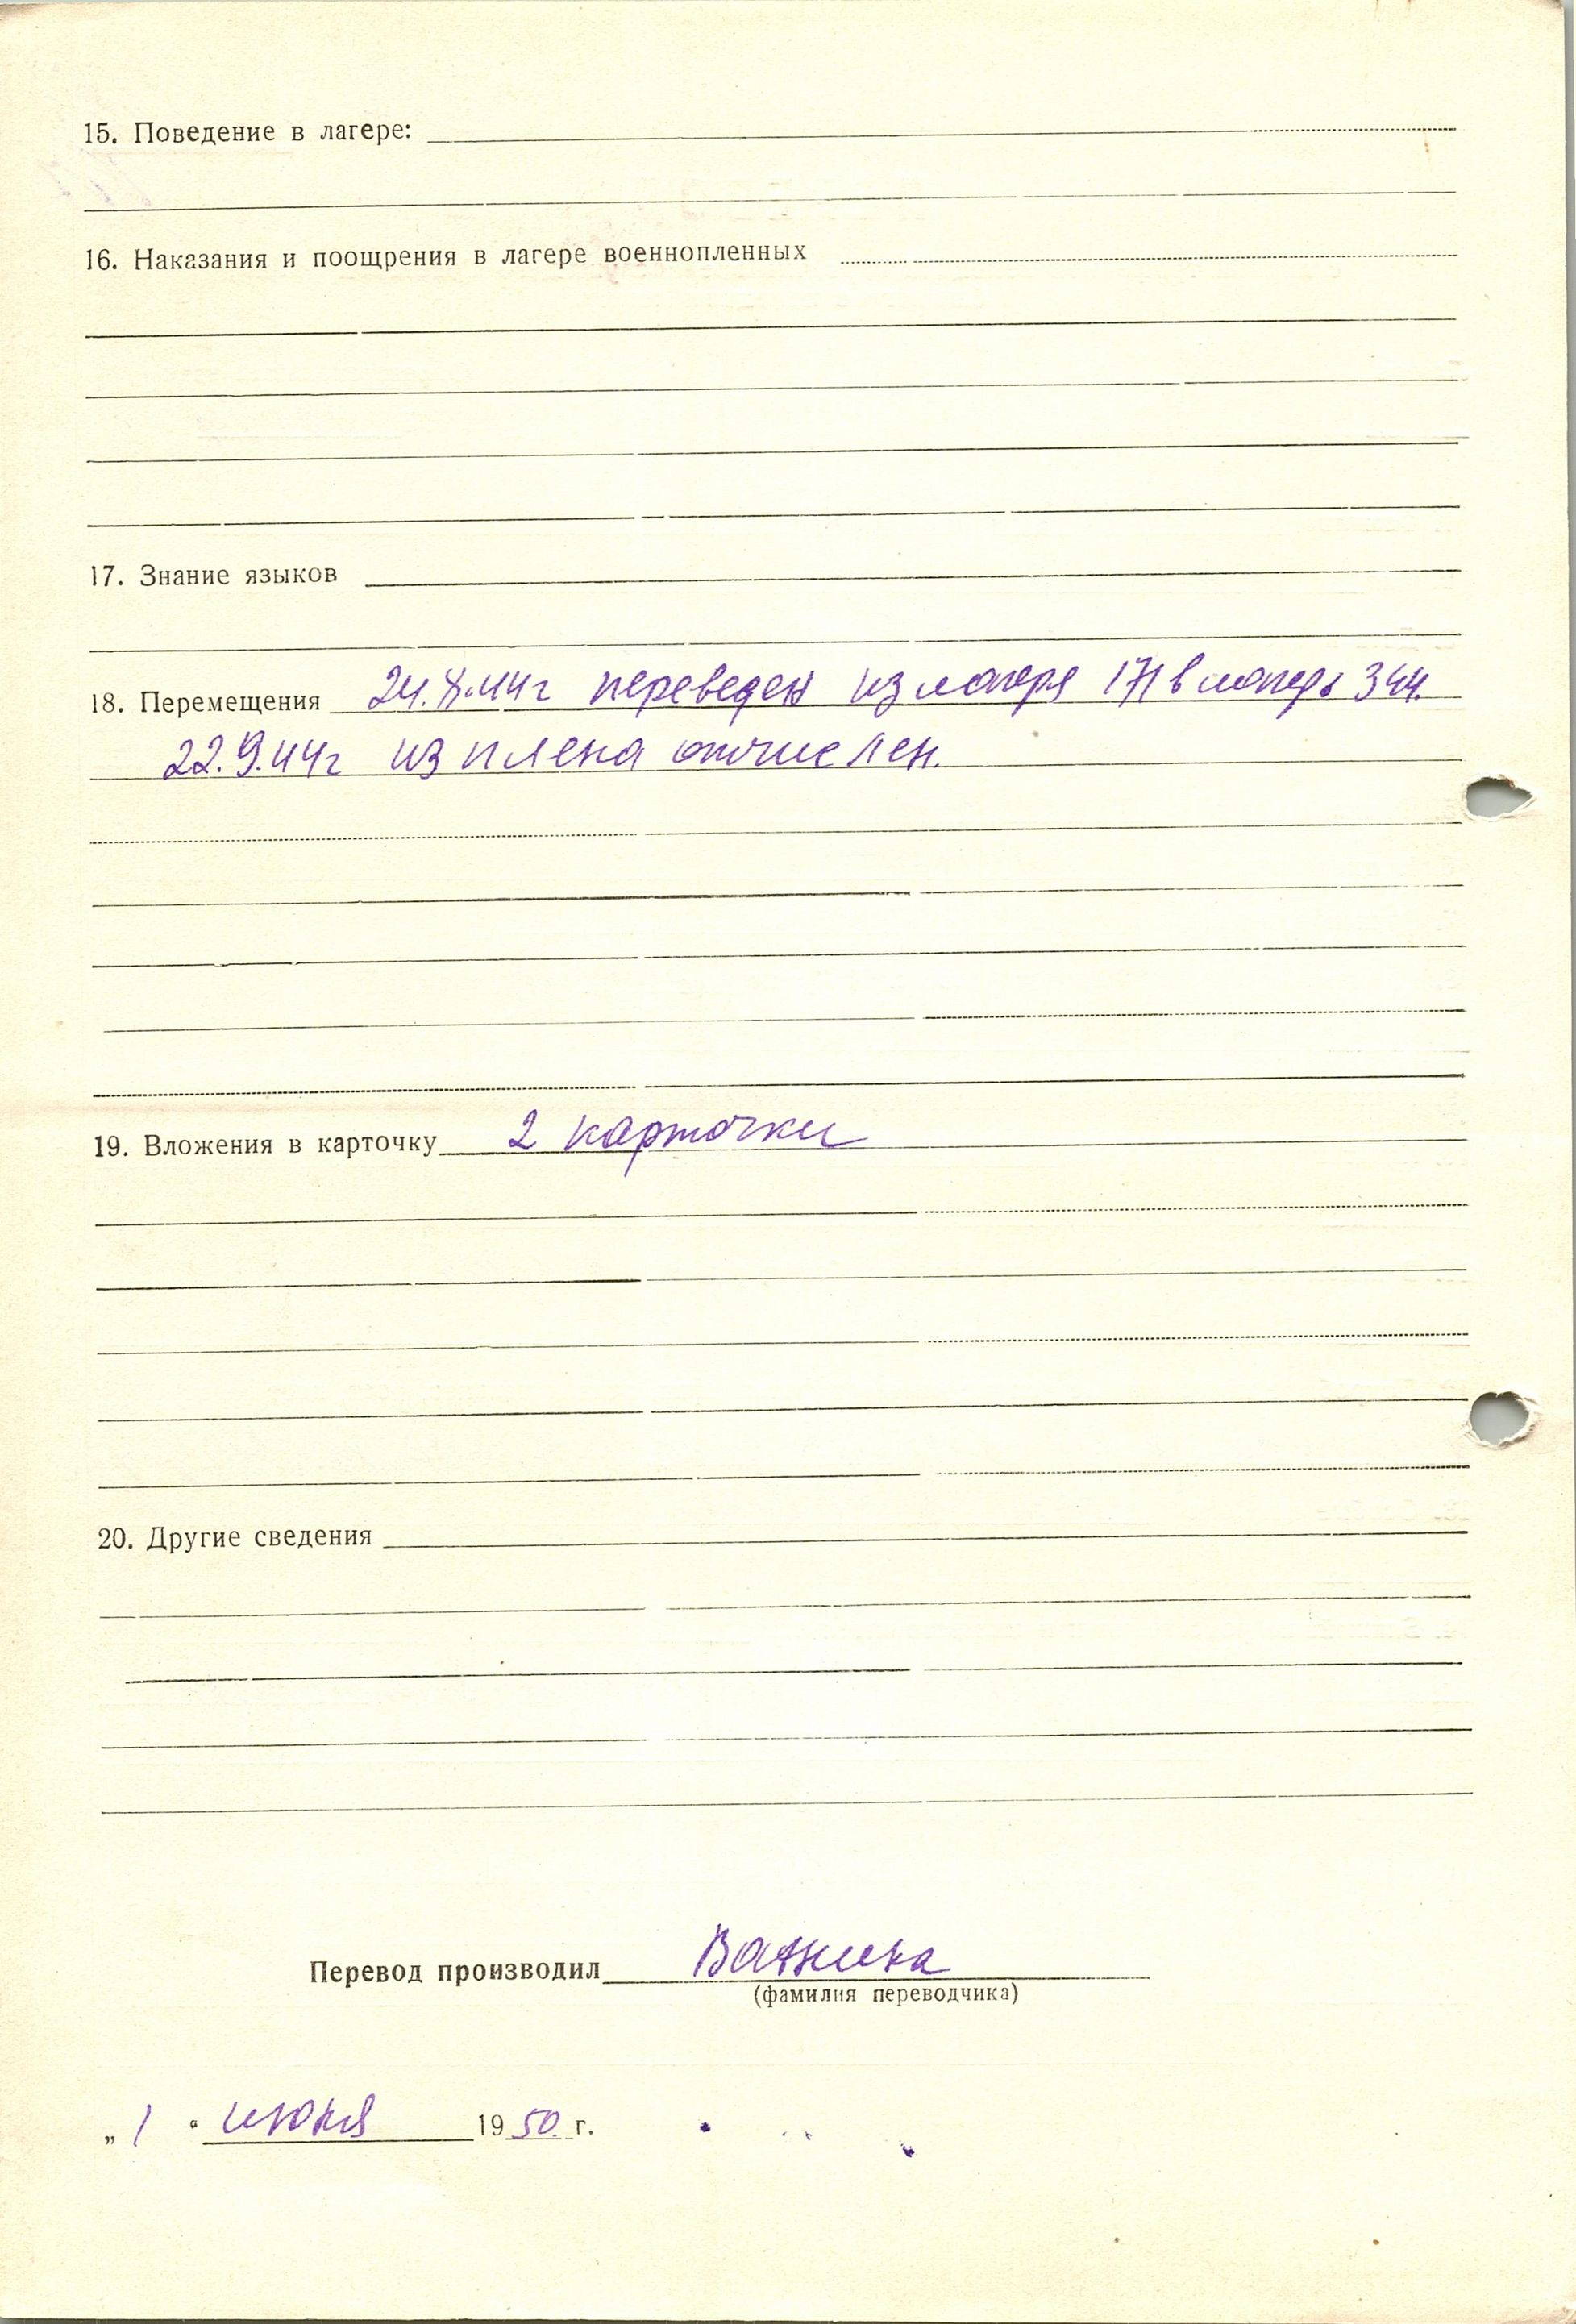 15. Поведение в лагере:
16. Наказания и поощрения в лагере военнопленных
17. Знание языков
18. Перемещения 24.8.44г переведен из лагеря 171 в лагерь 344.
22.9.44г из плена отчислен.
19. Вложения в карточку 2 карточки
20. Другие сведения
Перевод производил Важина
(фамилия переводчика)
„ 1 “ июня 1950 г.